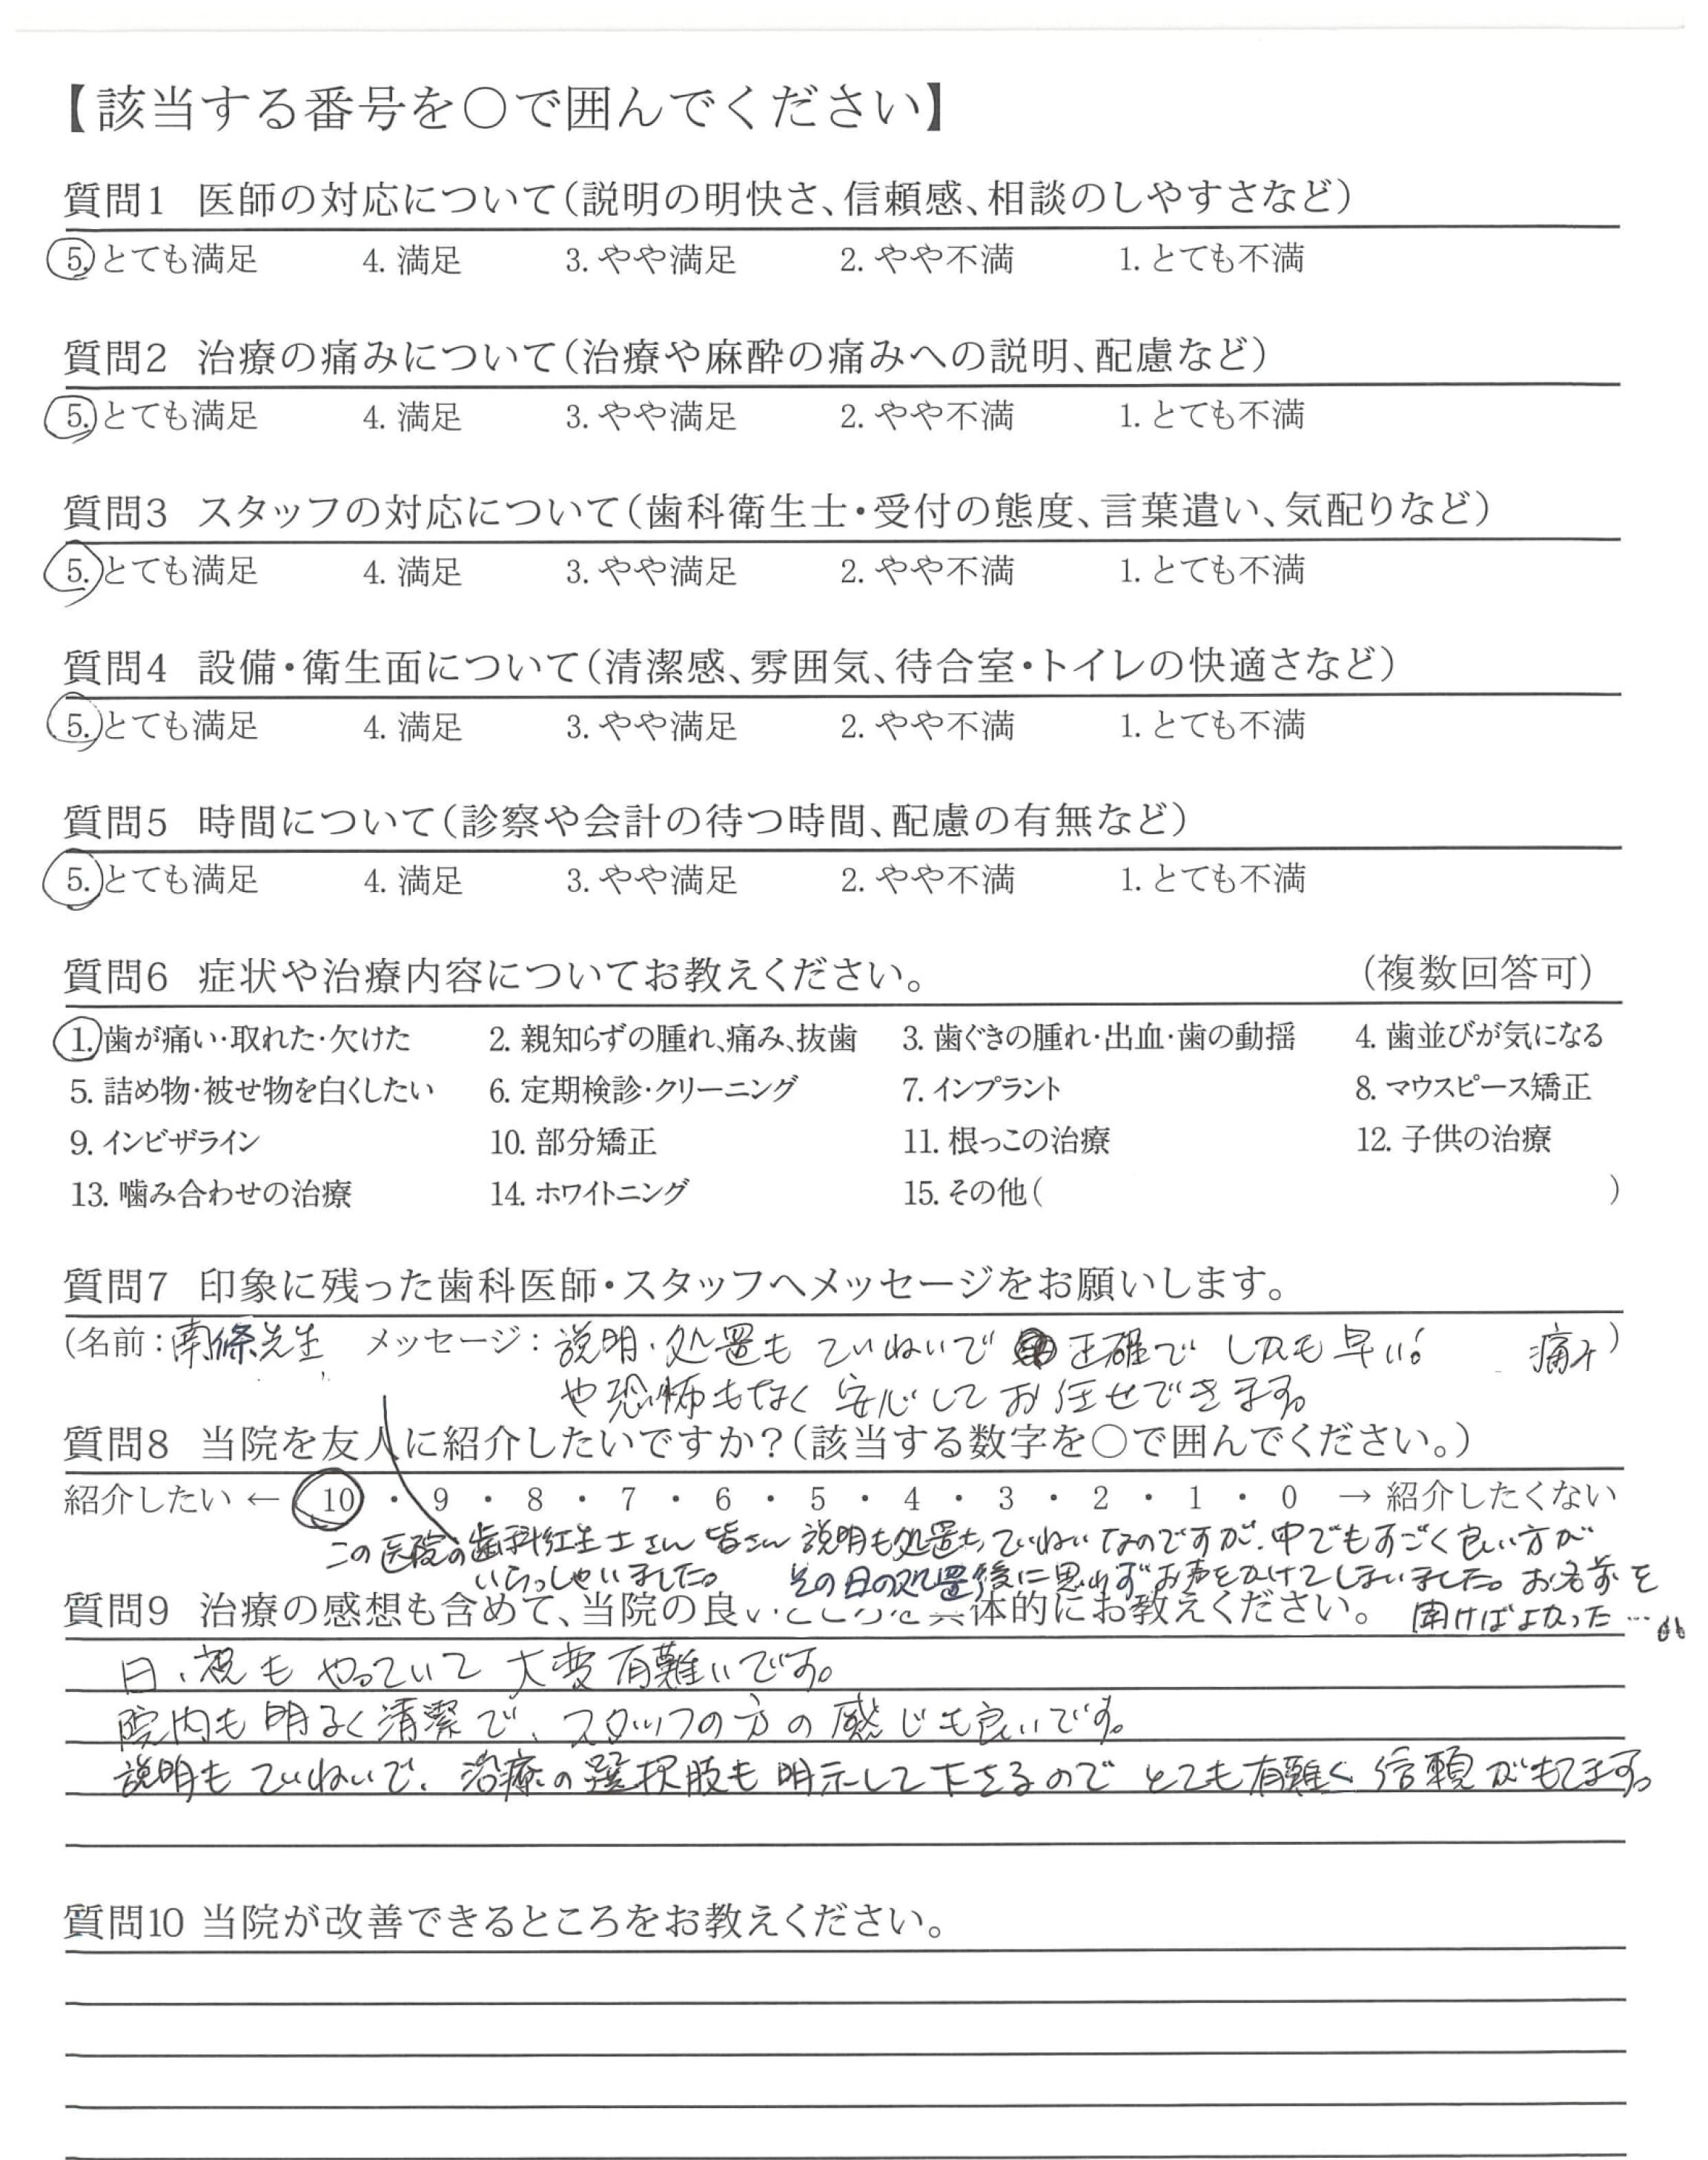 【該当する番号を〇で囲んでください】
質問1 医師の対応について(説明の明快さ、信頼感、相談のしやすさなど)
5. とても満足 4. 満足 3. やや満足 2. やや不満 1. とても不満
質問2 治療の痛みについて(治療や麻酔の痛みへの説明、配慮など)
5. とても満足 4. 満足 3. やや満足 2. やや不満 1. とても不満
質問3 スタッフの対応について(歯科衛生士・受付の態度、言葉遣い、気配りなど)
5. とても満足 4. 満足 3. やや満足 2. やや不満 1. とても不満
質問4 設備・衛生面について(清潔感、雰囲気、待合室・トイレの快適さなど)
5. とても満足 4. 満足 3. やや満足 2. やや不満 1. とても不満
質問5 時間について(診察や会計の待つ時間、配慮の有無など)
5. とても満足 4. 満足 3. やや満足 2. やや不満 1. とても不満
質問6 症状や治療内容についてお教えください。 (複数回答可)
1. 歯が痛い・取れた・欠けた 2. 親知らずの腫れ、痛み、抜歯 3. 歯ぐきの腫れ・出血・歯の動揺 4. 歯並びが気になる
5. 詰め物・被せ物を白くしたい 6. 定期検診・クリーニング 7. インプラント 8. マウスピース矯正
9. インビザライン 10. 部分矯正 11. 根っこの治療 12. 子供の治療
13. 噛み合わせの治療 14. ホワイトニング 15. その他( )
質問7 印象に残った歯科医師・スタッフへメッセージをお願いします。
(名前:南條先生 メッセージ:説明・処置も ていねいで 正確で しかも早い! 痛み)
や恐怖もなく 安心して お任せできます。
質問8 当院を友人に紹介したいですか?(該当する数字を〇で囲んでください。)
紹介したい ← 10 ・ 9 ・ 8 ・ 7 ・ 6 ・ 5 ・ 4 ・ 3 ・ 2 ・ 1 ・ 0 → 紹介したくない
この医院の歯科衛生士さん 皆さん 説明も処置も、ていねいなのですが、中でもすごく良い方が
いらっしゃいました。 その日の処置後に思わずお声をかけてしまいました。お名前を
聞けばよかった…
質問9 治療の感想も含めて、当院の良いところを具体的にお教えください。
日、祝も やっていて 大変有難いです。
院内も 明るく清潔で、スタッフの方の感じも良いです。
説明も ていねいで、治療の選択肢も 明示して下さるので とても有難く 信頼がもてます。
質問10 当院が改善できるところをお教えください。